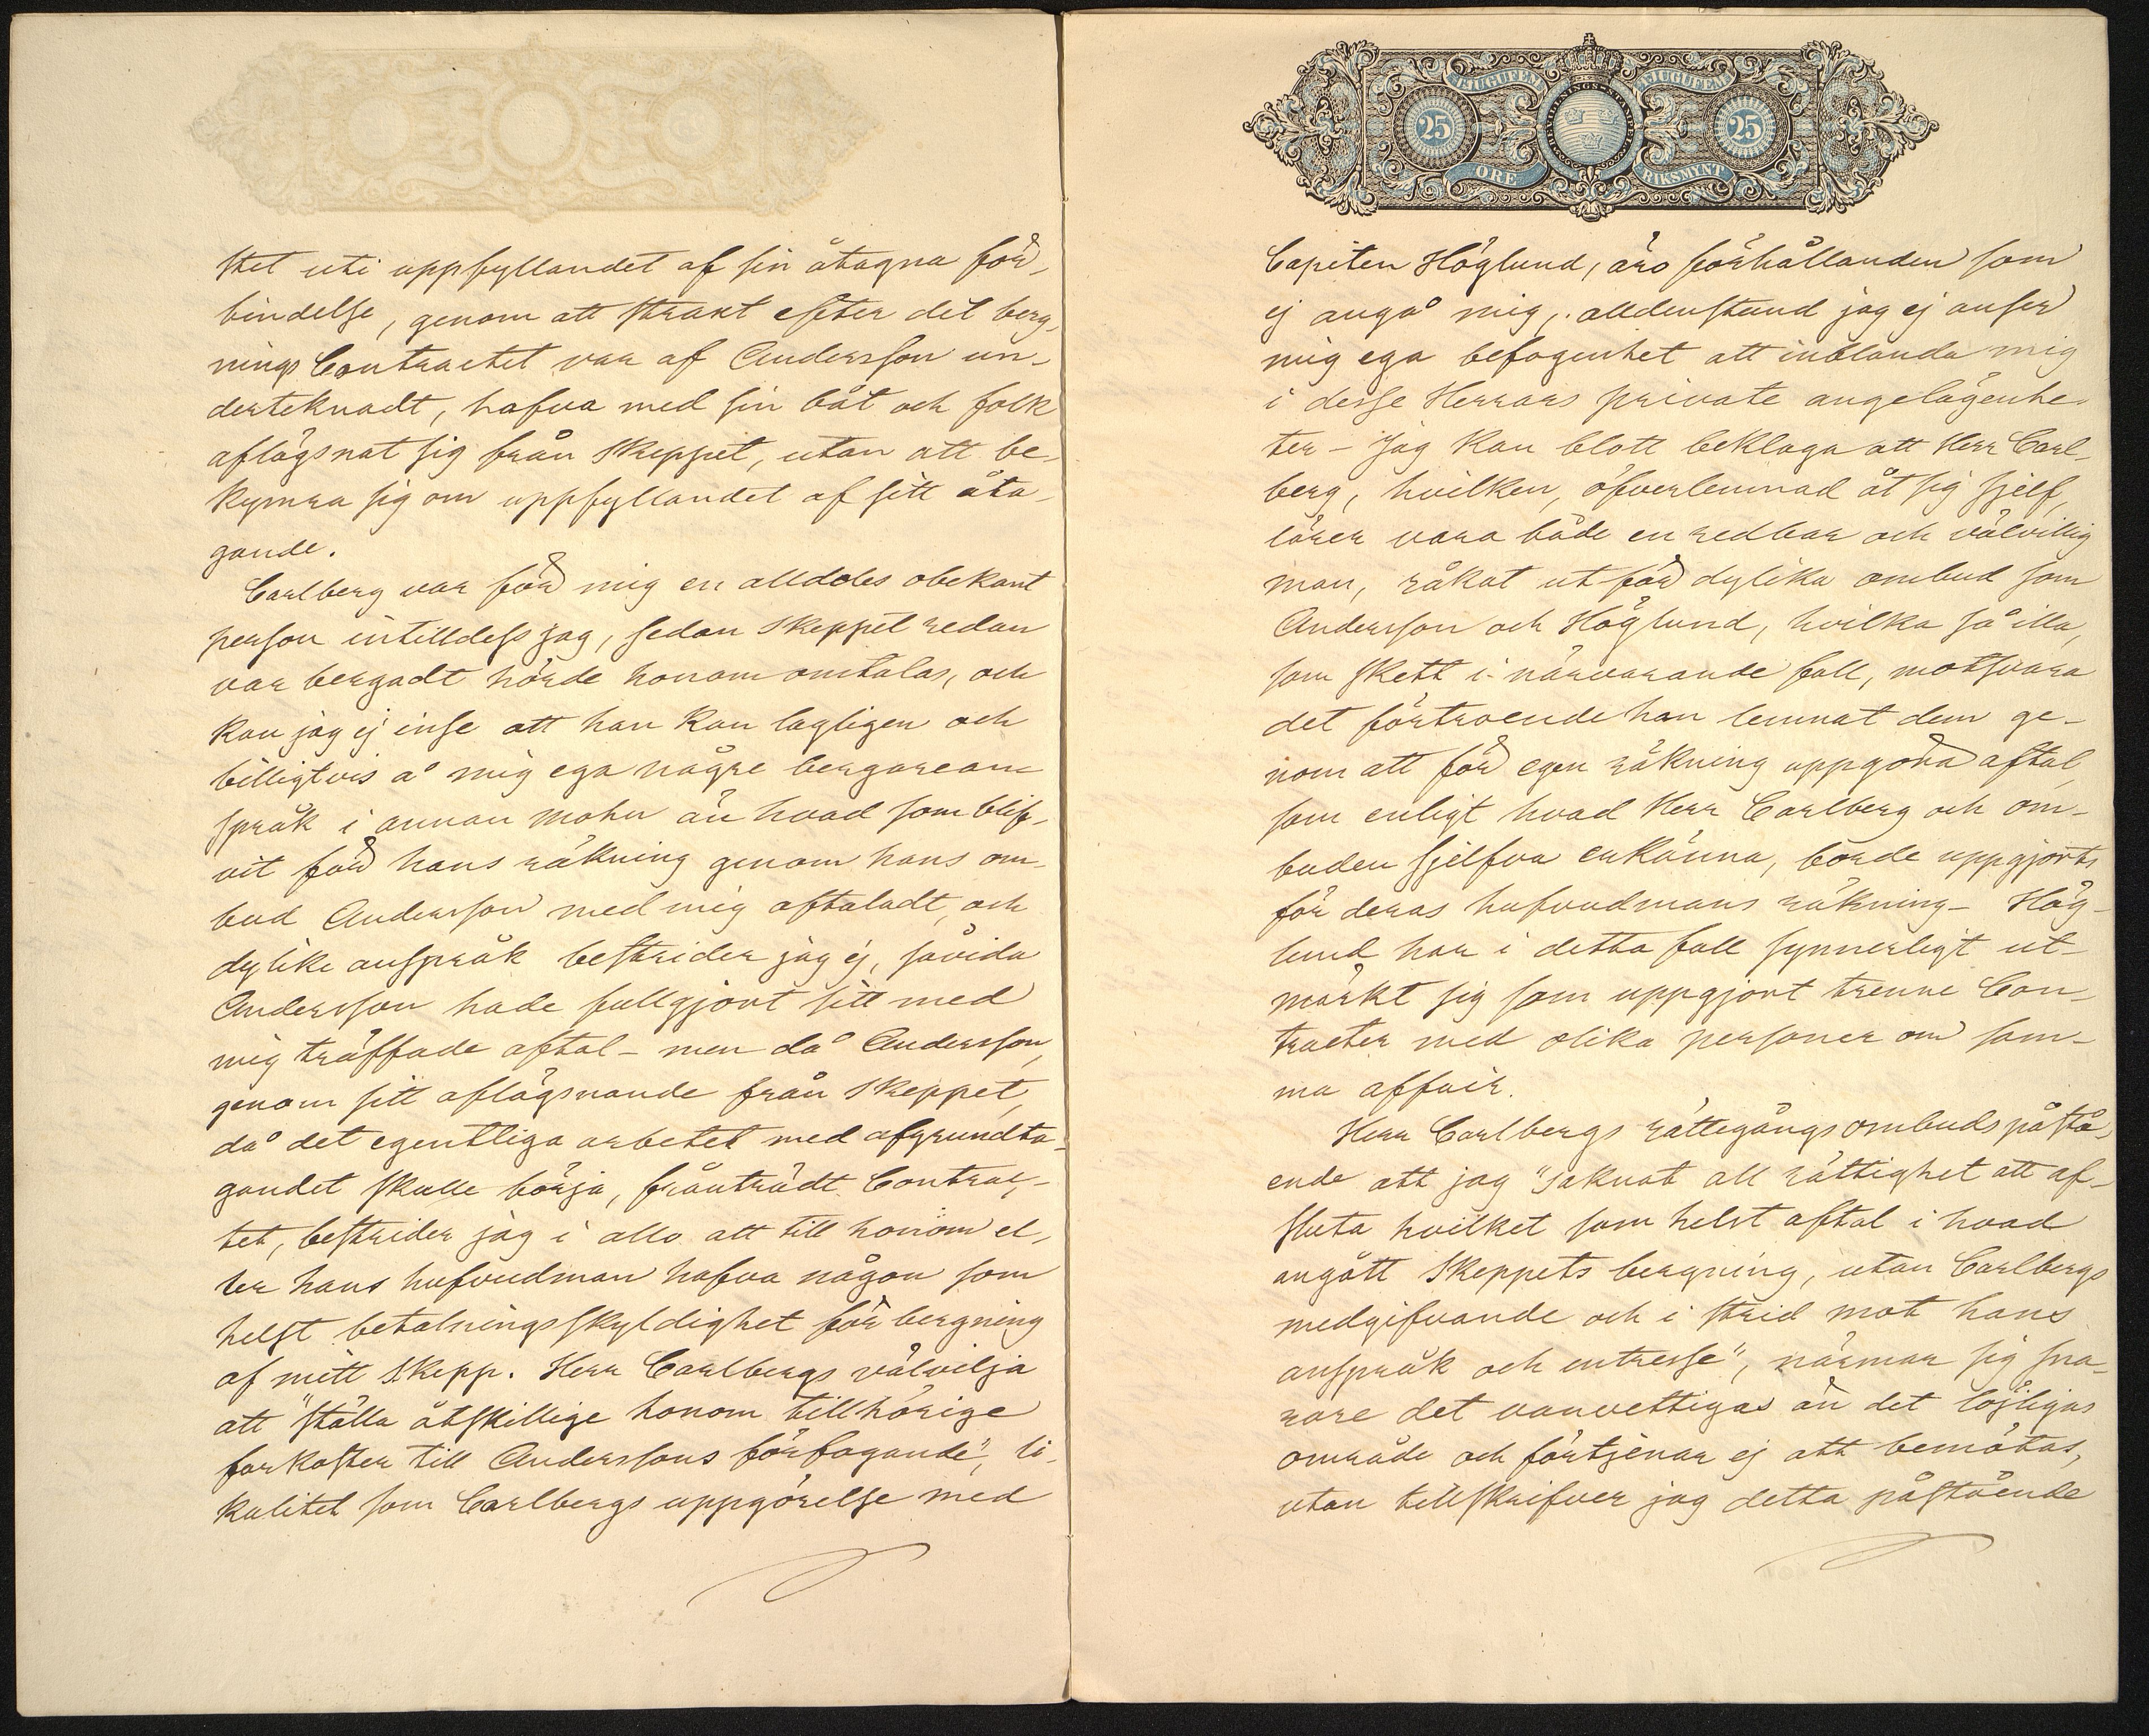 stet uti uppfyllandet af sin åtagna för-
bindelse, genom att strax efter det berg-
nings Contractet var af Andersson un-
derteknadt, hafva med sin båt och folk
aflägsnat sig från skeppet, utan att be-
kymra sig om uppfyllandet af sitt åta-
gande.
Carlberg var för mig en alldeles obekant
person intilldess jag, sedan skeppet redan
var bergadt hörde honom omtalas, och
kan jag ej inse att han kan lagligen och
billigtvis å mig ega några bergarean-
språk i annan mohn än hvad som blif-
vit för hans räkning genom hans om-
bud Andersson med mig aftaladt, och
dylike anspråk bestrider jag ej, såvida
Andersson hade fullgjort sitt med
mig träffade aftal – men då Andersson,
genom sitt aflägsnande från skeppet,
då det egentliga arbetet med afgrundta-
gandet skulle börja, frånträdt Contrac-
tet, bestrider jag i allo att till honom el-
ler hans hufvudman hafva någon som
helst betalningsskyldighet för bergning
af mitt skepp. Herr Carlbergs välvilja
att "ställa åtskillige honom tillhörige
farkoster till Anderssons förfogande", li-
kalitet som Carlbergs uppgörelse med
TJUGUFEM TJUGUFEM
25 25
ÖRE RIKSMYNT
Capiten Höglund, äro förhållanden som
ej angå mig, alldenstund jag ej anser
mig ega befogenhet att inblanda mig
i desse Herrars private angelägenhe-
ter – Jag kan blott beklaga att Herr Carl-
berg, hvilken, öfverlemnad åt sig sjelf,
lärer vara både en redbar och välvillig
man, råkat ut för dylika ombud som
Andersson och Höglund, hvilka så illa,
som skett i närvarande fall, motsvara
det förtroende han lemnat dem ge-
nom att för egen räkning uppgöra aftal,
som enligt hvad Herr Carlberg och om-
buden sjelfva erkänna, borde uppgjorts
för deras hufvudmans räkning – Hög-
lund har i detta fall synnerligt ut-
märkt sig som uppgjort trenne Con-
tracter med olika personer om sam-
ma affair.
Herr Carlbergs rättegångsombuds påstå-
ende att jag "saknat all rättighet att af-
sluta hvilket som helst aftal i hvad
angått skeppets bergning, utan Carlbergs
medgifvande och i strid mot hans
anspråk och intresse", närmar sig sna-
rare det vanvettigas än det löjligas
område och förtjenar ej att bemötas,
utan tillskrifver jag detta påstående